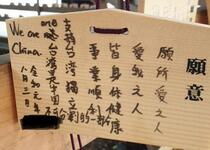 願意
願所愛之人
愛我之人
皆身体健康
事事順利
支持台湾
台湾是中国不可分割的一部分
We are one
China
令和元年
八月三日